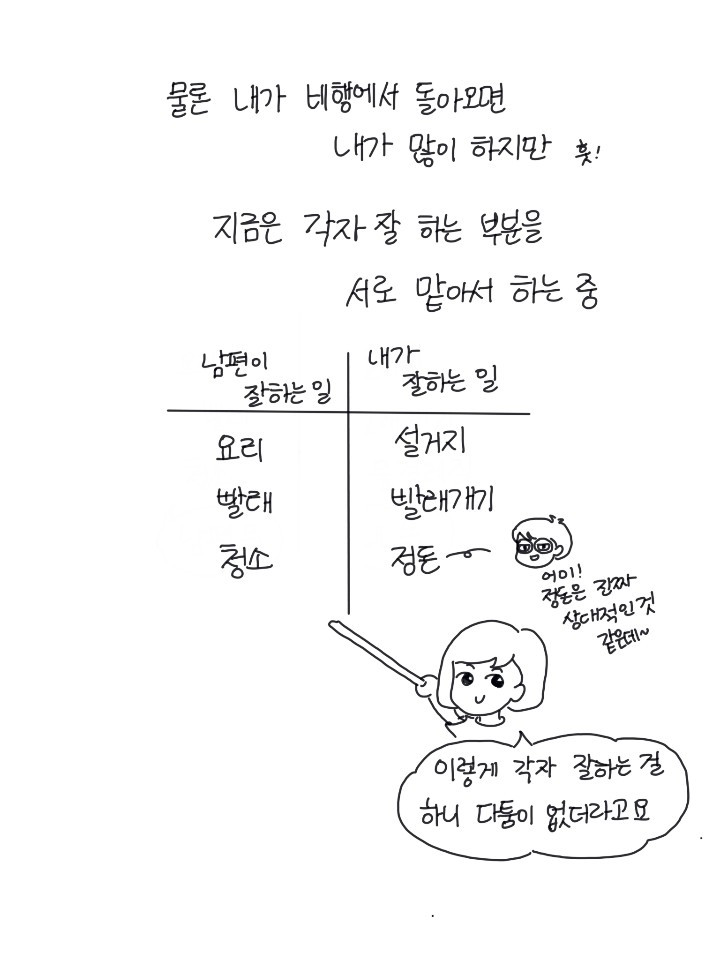 물론 내가 비행에서 돌아오면
내가 많이 하지만 훗!
지금은 각자 잘 하는 부분을
서로 맡아서 하는 중
남편이
잘하는 일
내가
잘하는 일
요리
설거지
빨래
빨래개기
청소
정돈
어이!
정돈은 진짜
상대적인 것
같은데~
이렇게 각자 잘하는 걸
하니 다툼이 없더라고요